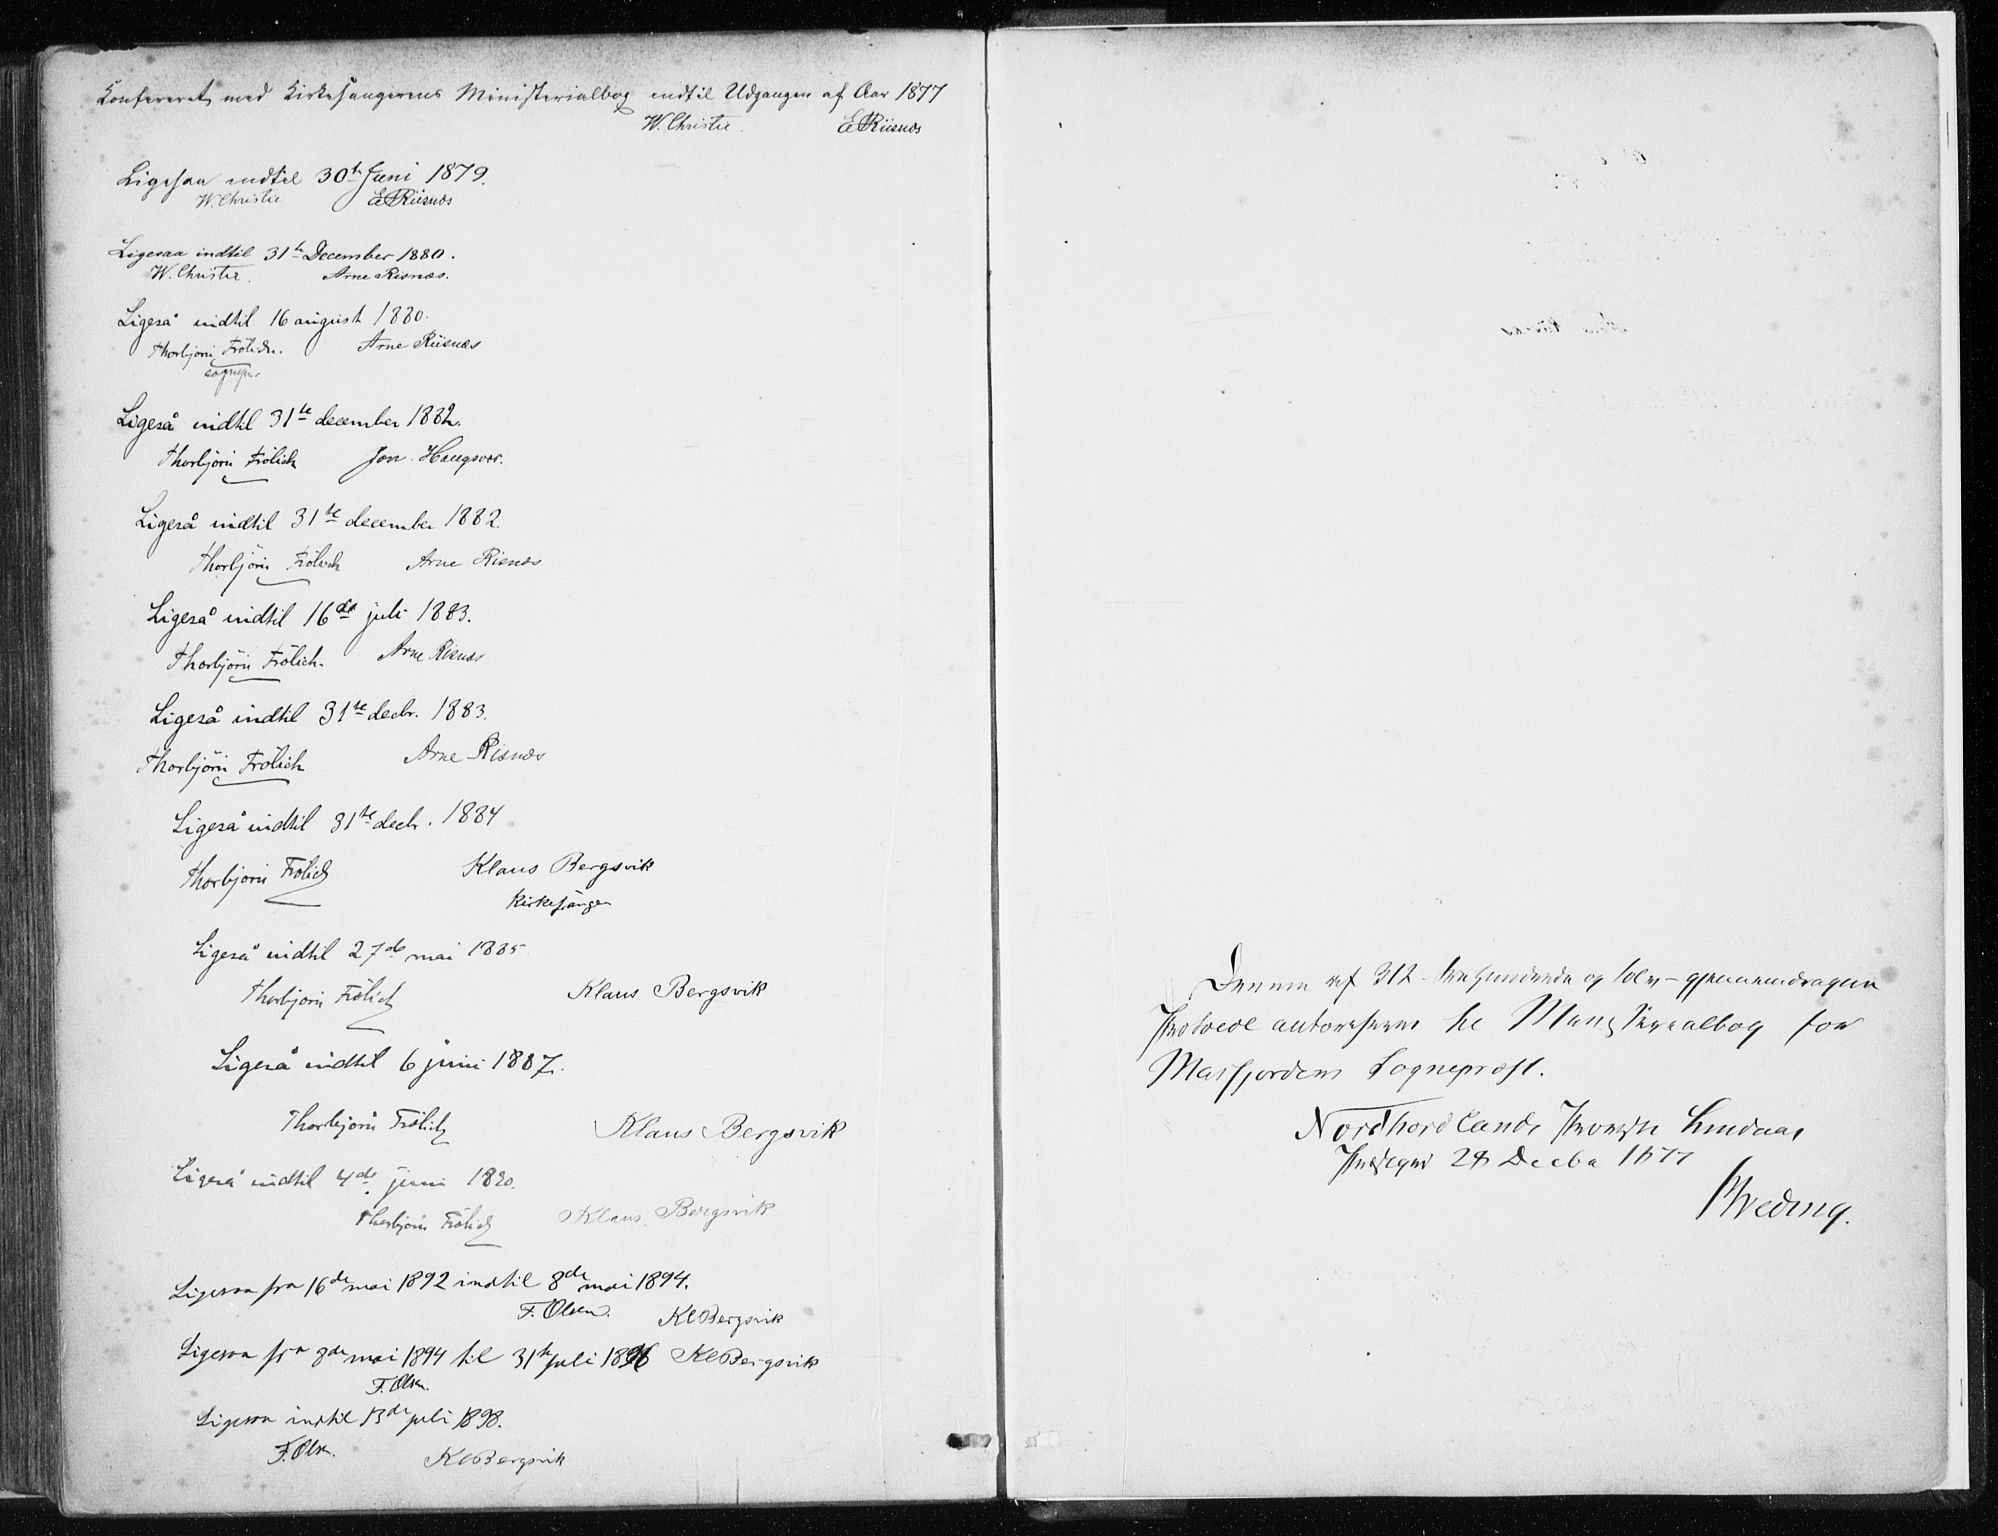 Konfereret med Kirkesangerens Ministerialbog indtil Udgangen af Aar 1877
W. Christie. E Riisnæs
Ligesaa indtil 30te Juni 1879.
W. Christie E Riisnæs
Ligesaa indtil 31te December 1880.
W. Christie. Arne Risnæs.
Ligeså indtil 16 august 1880.
Thorbjörn Frölich. Arne Riisnæs
sognepr.
Ligeså indtil 31te december 1882.
Thorbjörn Frölich Jon Haugsvær.
Ligeså indtil 31te december 1882.
Thorbjörn Frölich Arne Risnæs
Ligeså indtil 16de juli 1883.
Thorbjörn Frölich. Arne Risnæs
Ligeså indtil 31te decbr. 1883.
Thorbjörn Frölich Arne Risnæs
Ligeså indtil 31te decb. 1884
Thorbjörn Frölich Klaus Bergsvik
Kirkesanger
Ligeså indtil 27de mai 1885
Thorbjörn Frölich Klaus Bergsvik
Ligeså indtil 6 juni 1887.
Thorbjörn Frölich Klaus Bergsvik
Ligeså indtil 4de juni 1890.
Thorbjörn Frölich Klaus Bergsvik
Ligesaa fra 16de mai 1892 indtil 8de mai 1894.
F. Olsen. Kl Bergsvik
Ligesaa fra 8de mai 1894 til 31te juli 1896 Kl Bergsvik
F. Olsen.
Ligesaa indtil 13de juli 1898.
F. Olsen. Kl Bergsvik
Denne af 312 – trehundrede og tolv – gjennemdragen
Protocol autoriseres til Ministerialbog for
Masfjordens Sognepræst.
Nordhordlands Provsti Lindaas
Præstegrd 28 Decbr 1877
Wreding.